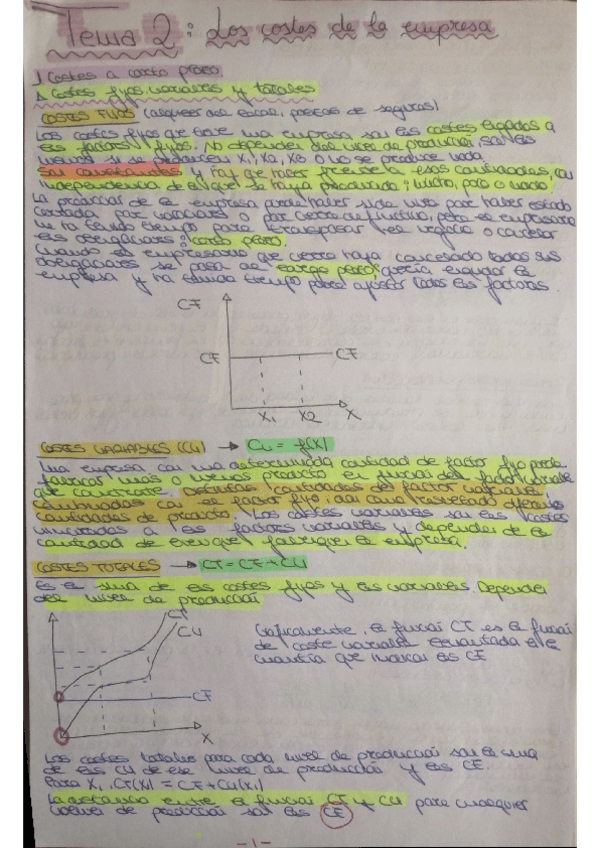 Tema 2: Los costes de la empresa
1) Costes a corto plazo
1. Costes fijos, variables y totales
COSTES FIJOS (alquiler del local, primas de seguros)
Los costes fijos que tiene una empresa son los costes ligados a
los factores fijos. No dependen del nivel de producción, son los
mismos si se producen X1, X2, X3 o no se produce nada.
Son constantes y hay que hacer frente a esas cantidades, con
independencia de lo que se haya producido; mucho, poco o nada.
La producción de la empresa puede haber sido nula por haber estado
cerrada por vacaciones o por cierre definitivo, pero el empresario
no ha tenido tiempo para traspasar el negocio o cancelar
las obligaciones: corto plazo.
Cuando el empresario que cierra haya cancelado todas sus
obligaciones se pasa al largo plazo; quería liquidar la
empresa y ha tenido tiempo para ajustar todos los factores.
CF
CF CF
X1 X2 X
COSTES VARIABLES (CV) → CV = f(X)
Una empresa con una determinada cantidad de factor fijo puede
fabricar más o menos producto en función del factor variable
que contrate. Distintas cantidades de factor variable
combinadas con el factor fijo, dan como resultado diferentes
cantidades de producto. Los costes variables son los costes
vinculados a los factores variables y dependen de la
cantidad de bien que fabrique la empresa.
COSTES TOTALES → CT = CF + CV
Es la suma de los costes fijos y los variables. Depende
del nivel de producción
CT
CV
CF
X
Gráficamente, la función CT es la función
de coste variable levantada en la
cuantía que marcan los CF
Los costes totales para cada nivel de producción son la suma
de los CV de ese nivel de producción y los CF.
Para X1, CT(X1) = CF + CV(X1)
La distancia entre la función CT y CV para cualquier
volumen de producción son los CF
-1-